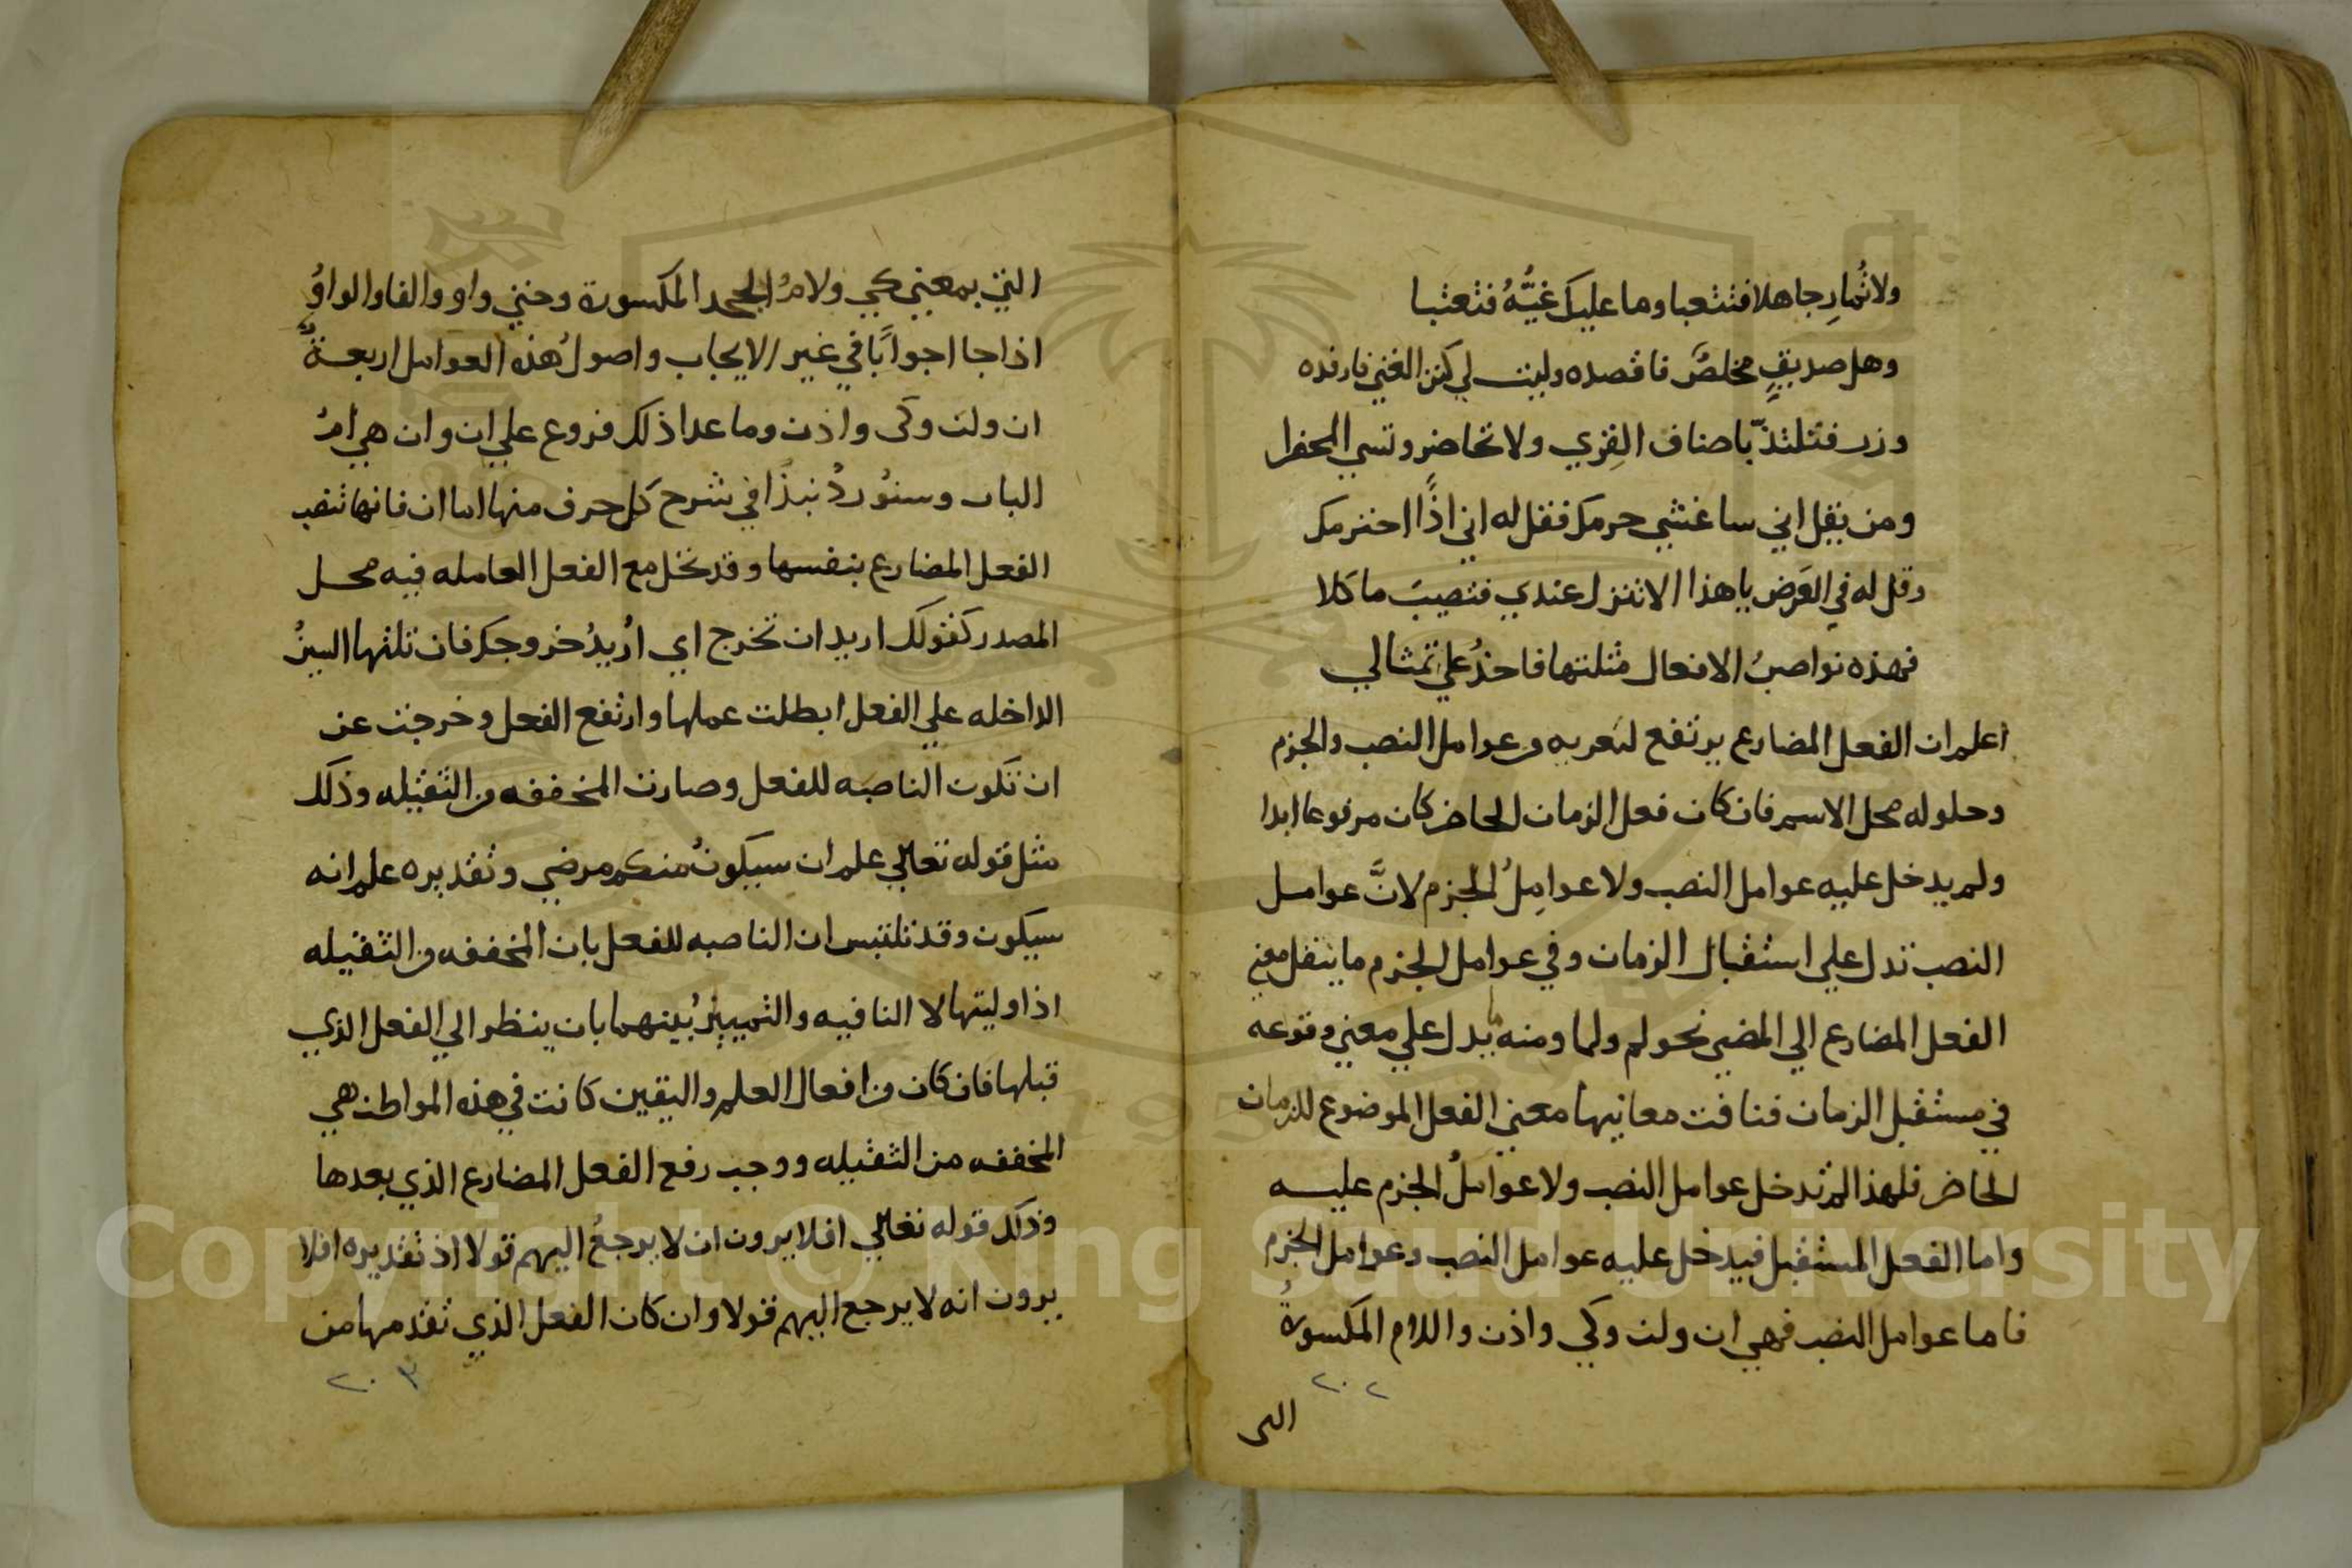 ولا تُمارِ جاهلا فتتعبا وما عليك غيَّهُ فتعتبا
وهل صديقٍ مخلصٌ فاقصده وليت لي كنز الغني فارفده
وزر فتلتذّ باصناف القِري ولا تحاضر وتسي المحضرا
ومن يقل اني ساغشي حرمك فقل له اني اذًا احترمك
وقل له في العَرض يا هذا الا تنزل عندي فتصيبَ ماكلا
فهذه نواصبُ الافعال مثلتها فاحذُ علي تمثالي
اعلم ان الفعل المضارع يرتفع لتعريه من عوامل النصب والجزم
وحلوله محل الاسم فان كان فعل الزمان الحاضر كان مرفوعا ابدا
ولم يدخل عليه عوامل النصب ولا عوامِلُ الجزم لانَّ عوامل
النصب تدل علي استقبال الزمان وفي عوامل الجزم ما ينقل معني
الفعل المضارع الي المضي نحو لم ولما ومنه ما يدل علي معني وقوعه
في مستقبل الزمان فنافت معانيها معني الفعل الموضوع للزمان
الحاضر فلهذا لم تدخل عوامل النصب ولا عواملُ الجزم عليه
واما الفعل المستقبل فيدخل عليه عوامل النصب وعوامل الجزم
فاما عوامل النصب فهي ان ولن وكي واذن واللام المكسورةُ
٢٠٢
التي
التي بمعني كي ولامُ الجحد المكسورة وحتي واو والفا والواوُ
اذا جا اجوابًا في غير الايجاب واصولُ هذه العوامل اربعةٌ
ان ولن وكى واذن وما عدا ذلك فروع علي ان وان هي امُ
الباب وسنُوردُ نبذًا في شرح كل حرف منها اما ان فانها تنصب
الفعل المضارع بنفسها وقد تحل مع الفعل العامله فيه محل
المصدر كقولك اريد ان تخرج اي اُريدُ خروجك فان تلتها السينُ
الداخله علي الفعل ابطلت عملها وارتفع الفعل وخرجت عن
ان تكون الناصبه للفعل وصارت المخففه من الثقيله وذلك
مثل قوله تعالي علم ان سيكونُ منكم مرضي وتقديره علم انه
سيكون وقد تلتبس ان الناصبه للفعل بان المخففه من الثقيله
اذا وليتها لا النافيه والتمييزُ بينهما بان ينظر الي الفعل الذي
قبلها فان كان من افعال العلم واليقين كانت في هذه المواطن هي
المخففه من الثقيله ووجب رفع الفعل المضارع الذي بعدها
وذلك قوله تعالي افلا يرون ان لا يرجعُ اليهم قولا اذ تقديره افلا
يرون انه لا يرجع اليهم قولا وان كان الفعل الذي تقدمها من
٢٠٣
Copyright © King Saud University